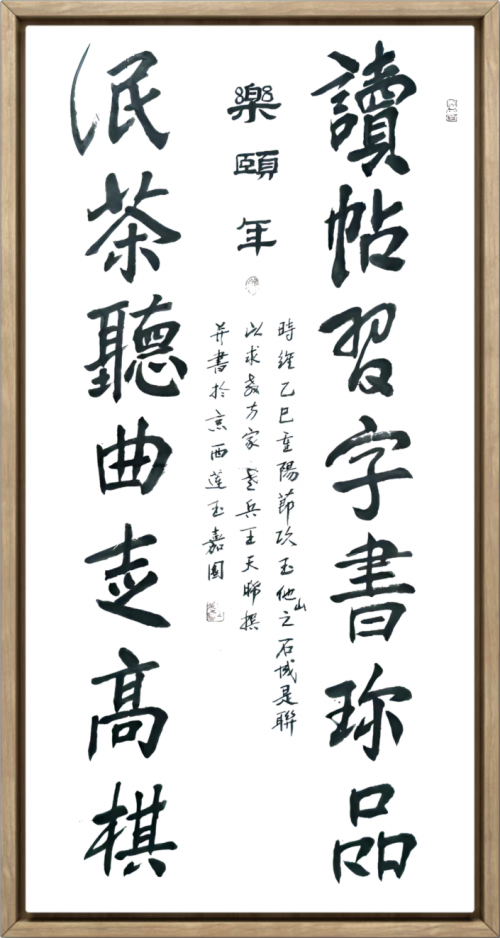 讀帖習字書珍品
樂頤年
時維乙巳重陽節攻玉他山之石成是聯
以求教方家老兵王天撰
并書於京西蓮玉嘉園
泯茶聽曲走高棋